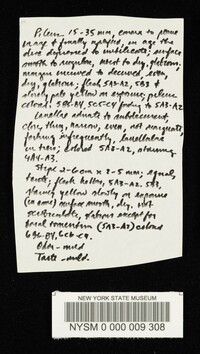 Pileus 15-35 mm, convex to plane
in age & finally uplifted, in age the
disc depressed to umbilicate; surface
smooth to rugulose, moist to dry, glabrous,
margin incurved to decurved, even,
dry, glabrous; flesh 5A3-A2, 5B3 &
slowly pale yellow on exposure, pileus
colored: 5B6-B4, 5C5-C4 fading to 5A3-A2
Lamellae adnate to subdecurrent,
close, thin, narrow, even, not marginate,
forking infrequently, lamellulate
in tiers; colored 5A3-A2, staining
4A4-A3.
Stipe 2-6 cm x 2-5 mm; equal,
terete; flesh hollow, 5A3-A2, 5B3,
staining yellow slowly on exposure
(in some) surface smooth, dry, not
glabrous except for
basal tomentum (5A3-A2) colored
6B6-B4, 6C6-C4.
Odor - mild
Taste - mild.
NEW YORK STATE MUSEUM
NYSM 0 000 009 308